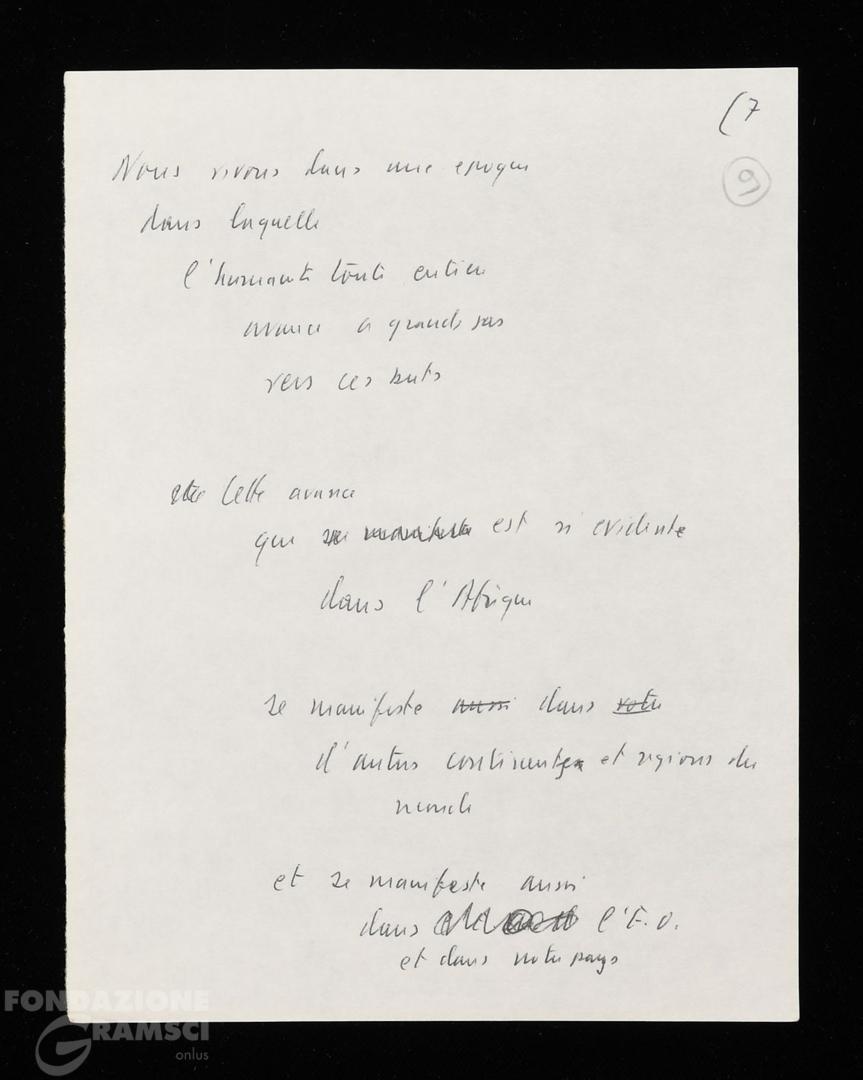 (7
9
Nous vivons dans une epoque
dans laquelle
l'humanité toute entière
avance a grands pas
vers ces buts
Cette avance
que est si evidente
dans l'Afrique
se manifeste aussi dans votre
d'autres continents et regions du
monde
et se manifeste aussi
dans l'E.O.
et dans notre pays
FONDAZIONE
GRAMSCI
onlus